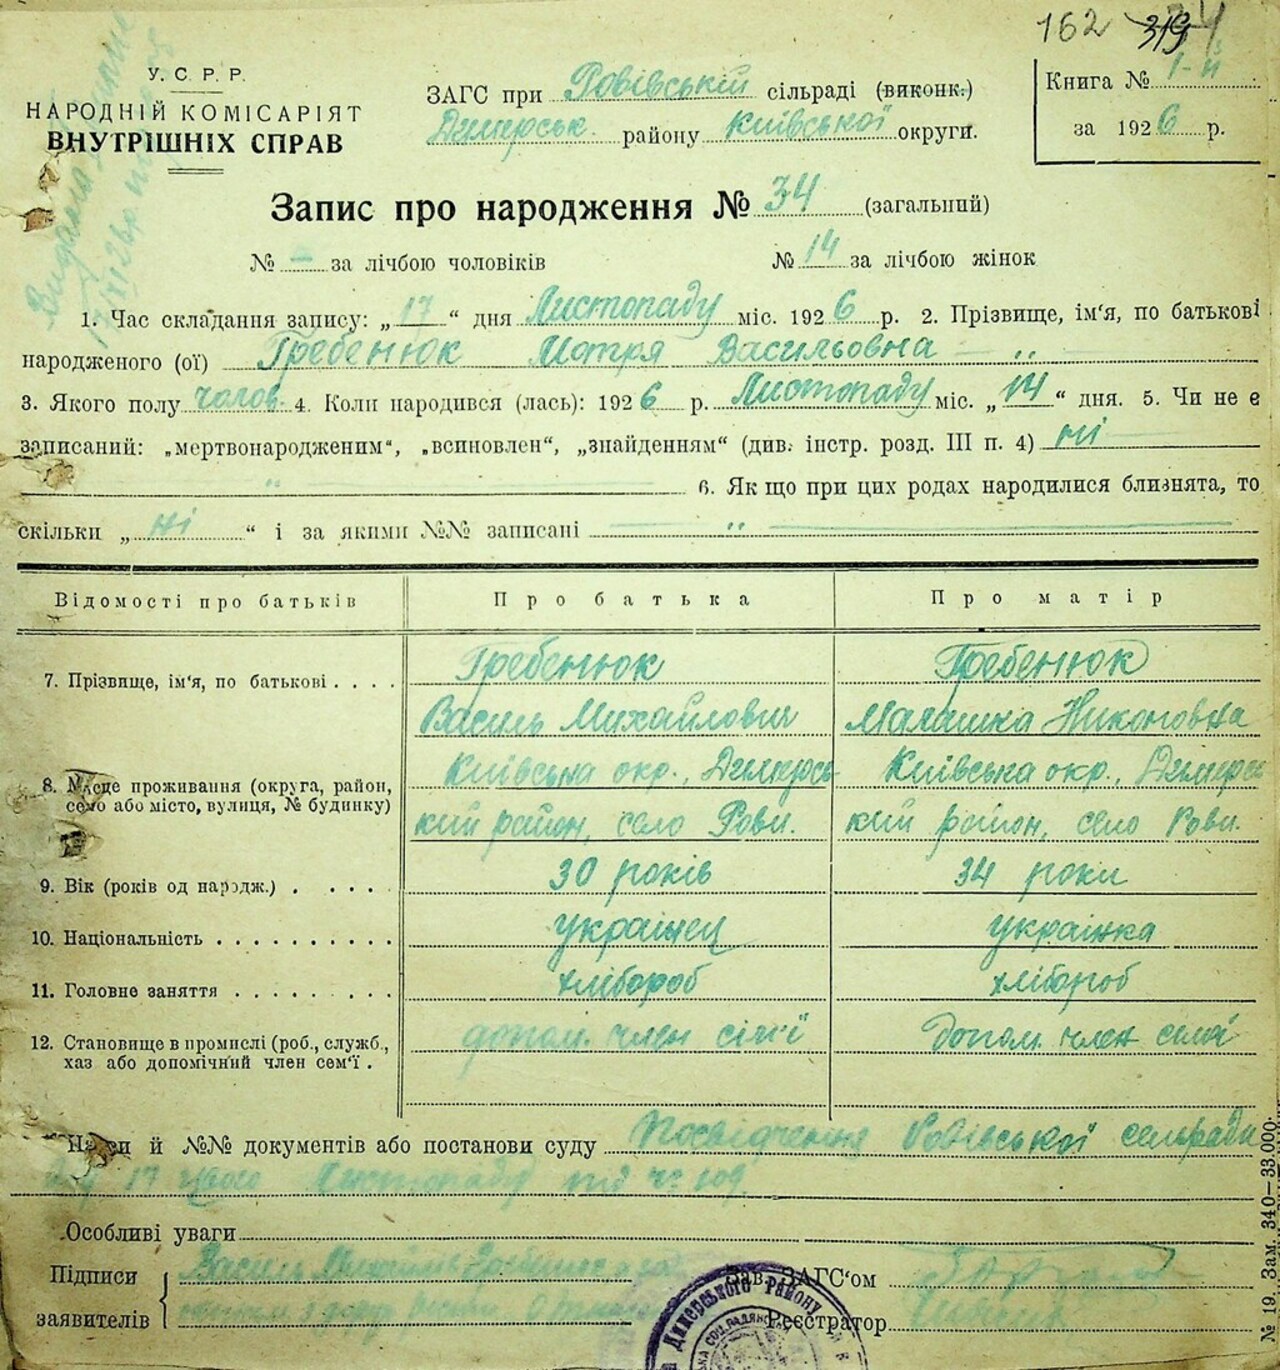 162 319
У. С. Р. Р.
НАРОДНІЙ КОМІСАРІЯТ
ВНУТРІШНІХ СПРАВ
ЗАГС при Ровівській сільраді (виконк.)
Димерськ. району Київської округи.
Книга № 1-й
за 1926 р.
Запис про народження № 34 (загальний)
№ — за лічбою чоловіків № 14 за лічбою жінок
1. Час складання запису: „17“ дня Листопаду міс. 1926 р. 2. Прізвище, ім'я, по батькові
народженого (ої) Гребенюк Мотря Васильовна
3. Якого полу чолов. 4. Коли народився (лась): 1926 р. Листопаду міс. „14“ дня. 5. Чи не є
записаний: „мертвонародженим“, „всиновлен“, „знайденням“ (див. інстр. розд. III п. 4) ні
6. Як що при цих родах народилися близнята, то
скільки „ні“ і за якими №№ записані
Відомості про батьків Про батька Про матір
7. Прізвище, ім'я, по батькові . . . . Гребенюк Гребенюк
Василь Михайлович Малашка Никоновна
8. Місце проживання (округа, район, село або місто, вулиця, № будинку) Київська окр., Димерсь- Київська окр., Димерсь
кий район, село Рови. кий район, село Рови.
9. Вік (років од народж.) . . . . . 30 років 34 роки
10. Національність . . . . . . . . . . українец українка
11. Головне заняття . . . . . . . . . хлібороб хлібороб
12. Становище в промислі (роб., служб., хаз або допомічний член сем'ї . допом. член сім'ї допом. член семї
Назви й №№ документів або постанови суду Посвідчення Ровівської сельради
від 17 Листопаду
Особливі уваги
Підписи
заявителів
Василь
Зав. ЗАГС'ом
Реєстратор
Димерського Району
№ 19. Зам. 340—33.000.